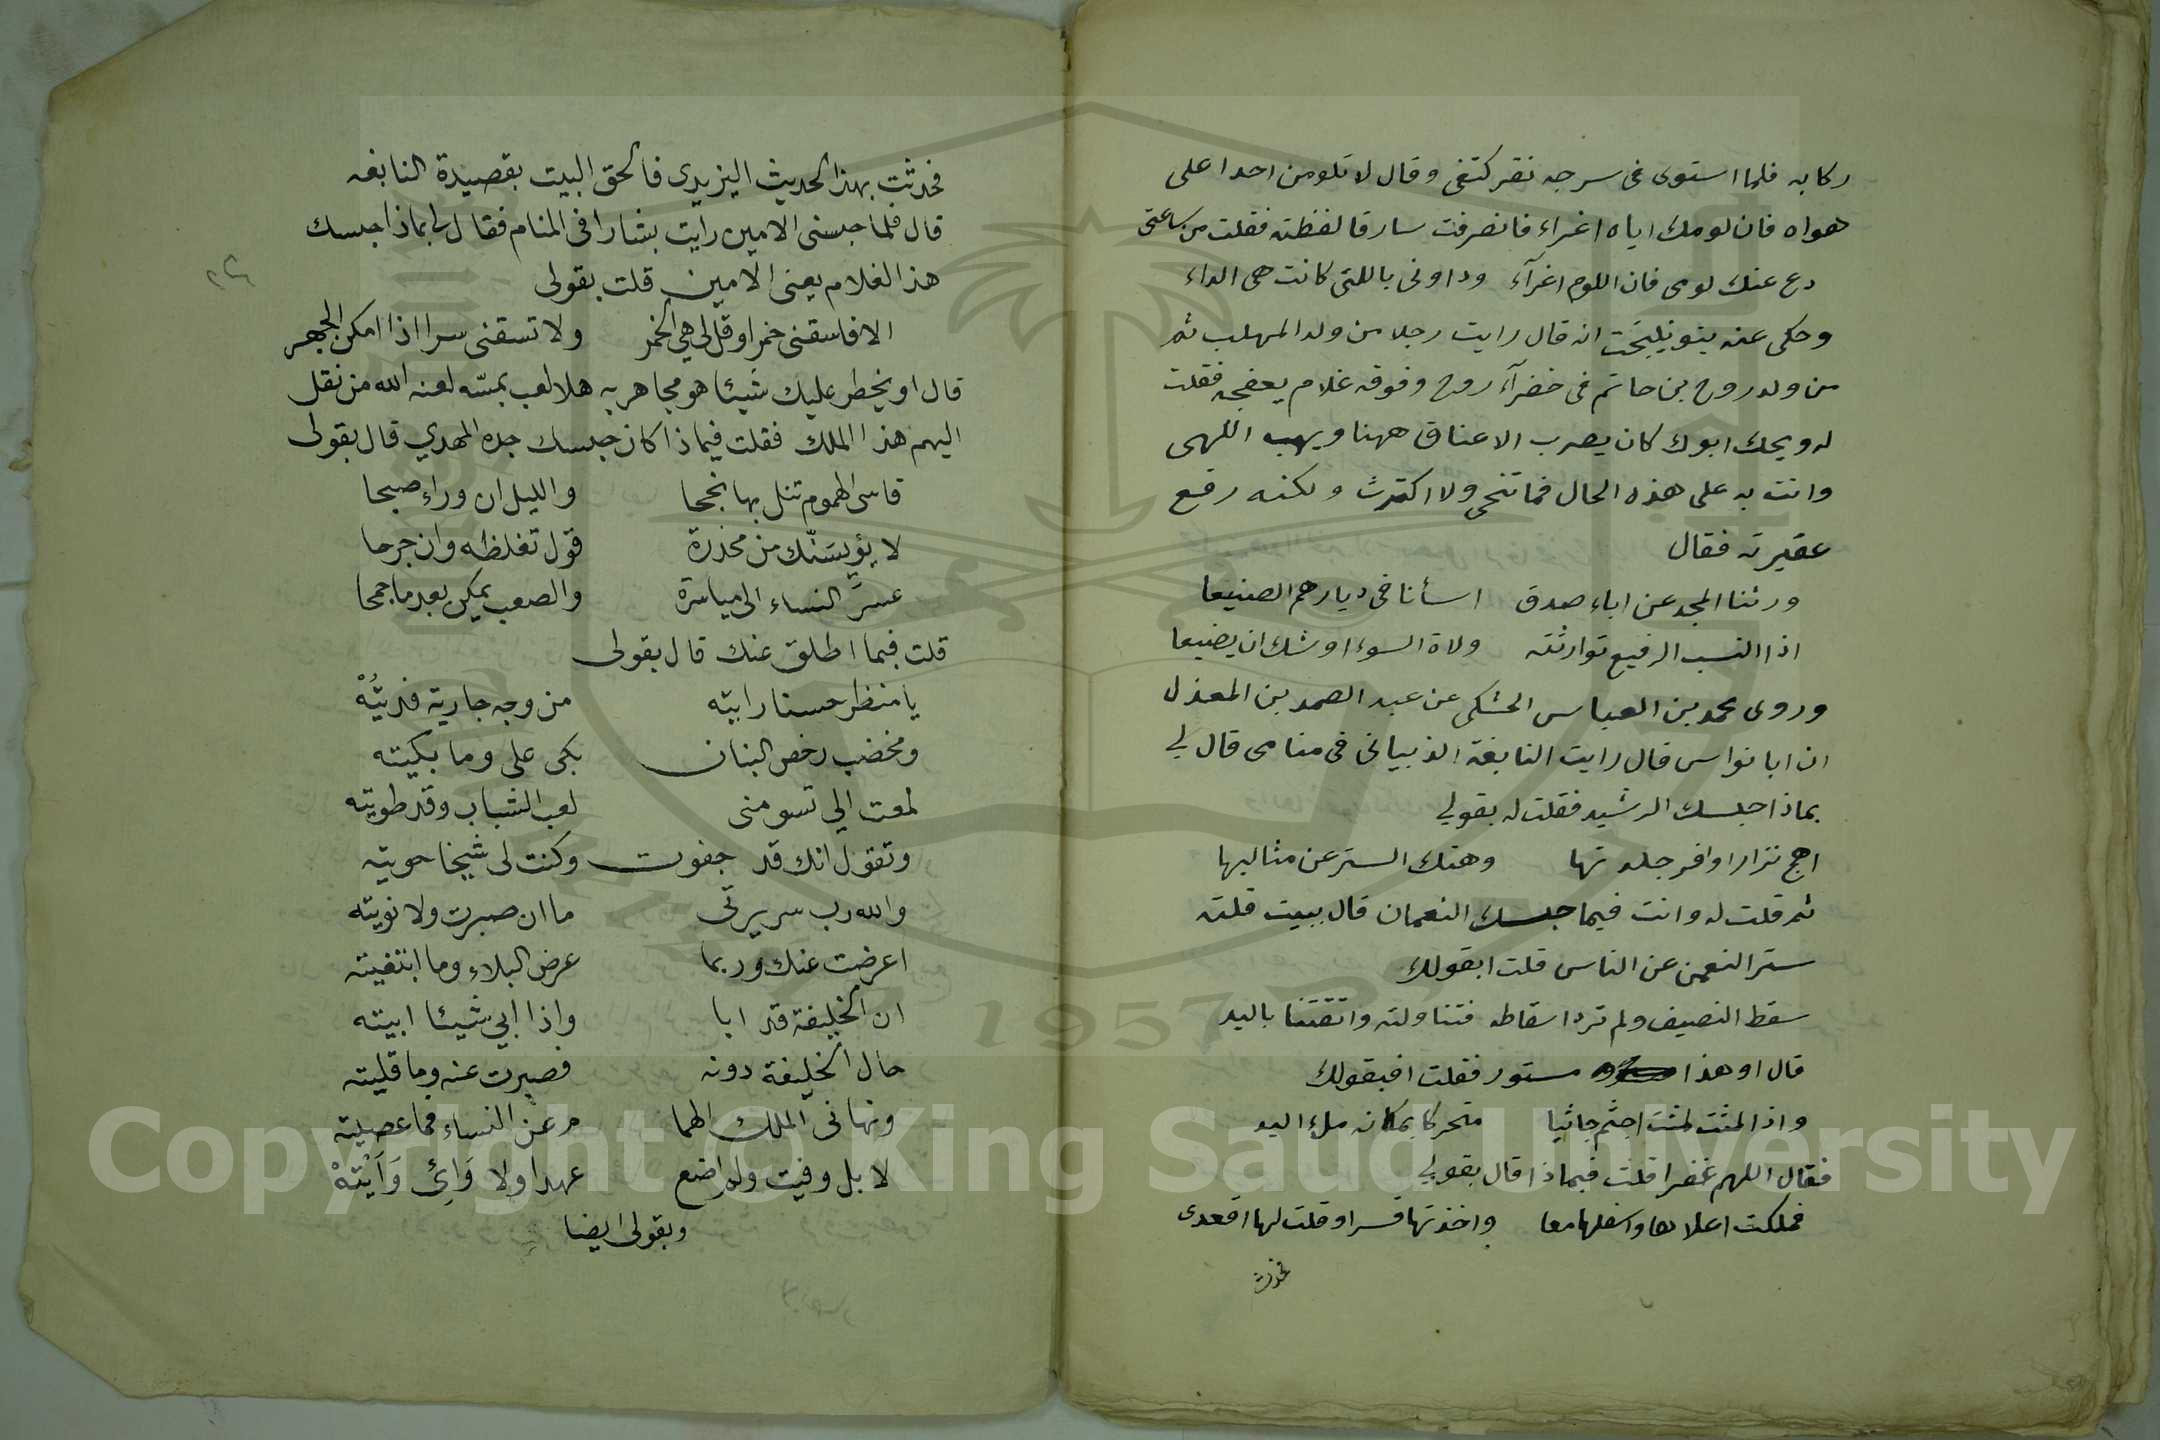 ركابه فلما استوى في سرجه نقر كتفي وقال لا تلومن احدا على
هواه فان لومك اياه اغراء فانصرفت سارقا لفظته فقلت من ساعتي
دع عنك لومي فان اللوم اغرآء وداوني باللتي كانت هي الداء
وحكى عنه بنو نيبخت انه قال رايت رجلا من ولد المهلب ثم
من ولد روح بن حاتم في خضرآء روح وفوقه غلام يعفجه فقلت
له ويحك ابوك كان يضرب الاعناق ههنا ويهب اللهى
وانت به على هذه الحال فما تنحى ولا اكترث ولكنه رفع
عقيرته فقال
ورثنا المجد عن اباء صدق اسأنا في ديارهم الصنيعا
اذا النسب الرفيع توارثته ولاة السوء اوشك ان يضيعا
وروى محمد بن العباس الخشكى عن عبد الصمد بن المعذل
ان ابا نواس قال رايت النابغة الذبياني في منامي قال لي
بماذا حبسك الرشيد فقلت له بقولي
اهج نزارا وافر جلدتها وهتك الستر عن مثالبها
ثم قلت له وانت فيما حبسك النعمان قال ببيت قلته
ستر النعمن عن الناس قلت ابقولك
سقط النصيف ولم ترد اسقاطه فتناولته واتقتنا باليد
قال او هذا مستور فقلت افبقولك
واذا لمثت لمثت اجثم جاثيا متحركا بمكانه ملء اليد
فقال اللهم غفرا قلت فبماذا قال بقولي
فملكت اعلاها واسفلها معا واخذتها قسرا وقلت لها اقعدي
فحدثت
فحدثت بهذا الحديث اليزيدي فالحق البيت بقصيدة النابغه
قال فلما حبسني الامين رايت بشارا في المنام فقال لي بماذا حبسك
هذا الغلام يعنى الامين قلت بقولى
الا فاسقنى خمرا وقل لي هي الخمر ولا تسقنى سرا اذا امكن الجهر
قال او يخطر عليك شيئا هو مجاهر به هلا لعب بمسّه لعنه الله من نقل
اليهم هذا الملك فقلت فيماذا كان حبسك جده المهدي قال بقولى
قاسى الهموم تنل بها نجحا والليل ان وراءه صبحا
لا يؤيسنّك من مخدرة قول تغلظه وان جرحا
عسر النساء الى مياسرة والصعب يمكن بعد ما جمحا
قلت فبما اطلق عنك قال بقولى
يا منظرا حسنا رايته من وجه جارية فديته
ومخضب رخص البنان بكى على وما بكيته
لمعت الي تسومنى لعب الشباب وقد طويته
وتقول انك قد جفوت وكنت لى شيخا حويته
والله رب سريرتي ما ان صبرت ولا نويته
اعرضت عنك وربما عرض البلاء وما ابتغيته
ان الخليفة قد ابا واذا ابي شيئا ابيته
حال الخليفة دونه فصبرت عنه وما قليته
ونهاني الملك الهما م عن النساء فما عصيته
لا بل وفيت ولم اضع عهدا ولا وَائِ وَأَيْتهْ
وبقولى ايضا
1957
Copyright © King Saud University